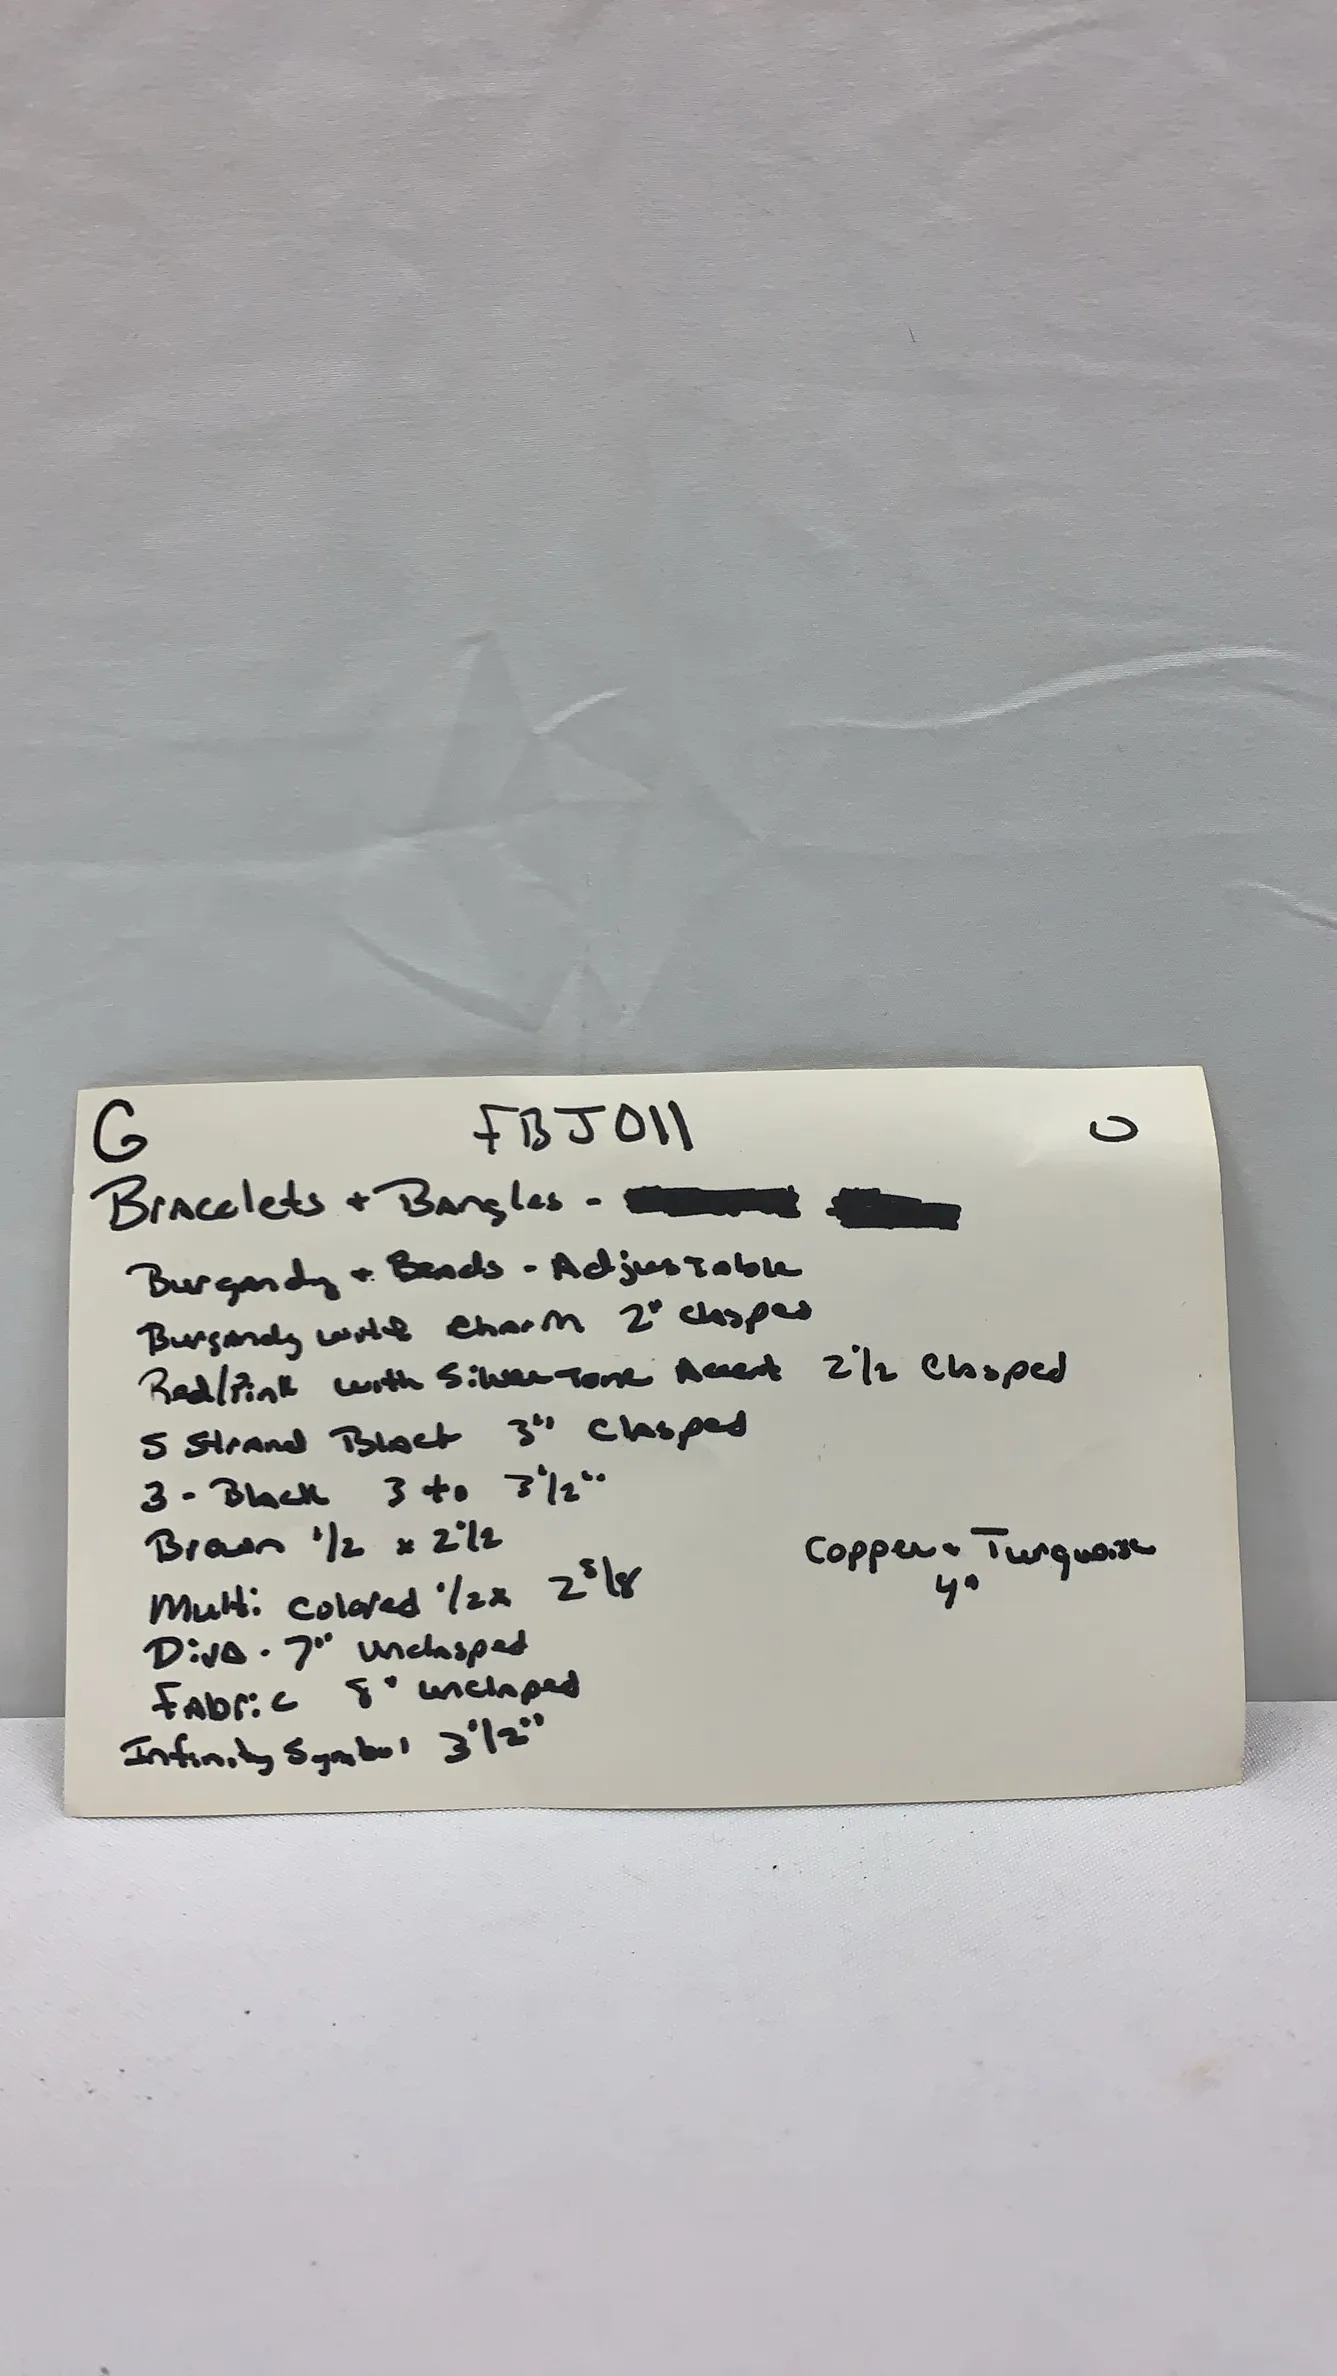 G FBJ011 U
Bracelets + Bangles -
Burgandy + Beads - Adjustable
Burgandy with charm 2" clasped
Red/Pink with Silver Tone Accent 2 1/2 Clasped
5 Strand Black 3" Clasped
3 - Black 3 to 3 1/2"
Brown 1/2 x 2 1/2
Multi colored 1/2 x 2 5/8
Diva - 7" unclasped
Fabric 8" unclaped
Infinity Symbol 3 1/2"
Copper + Turquoise
4"